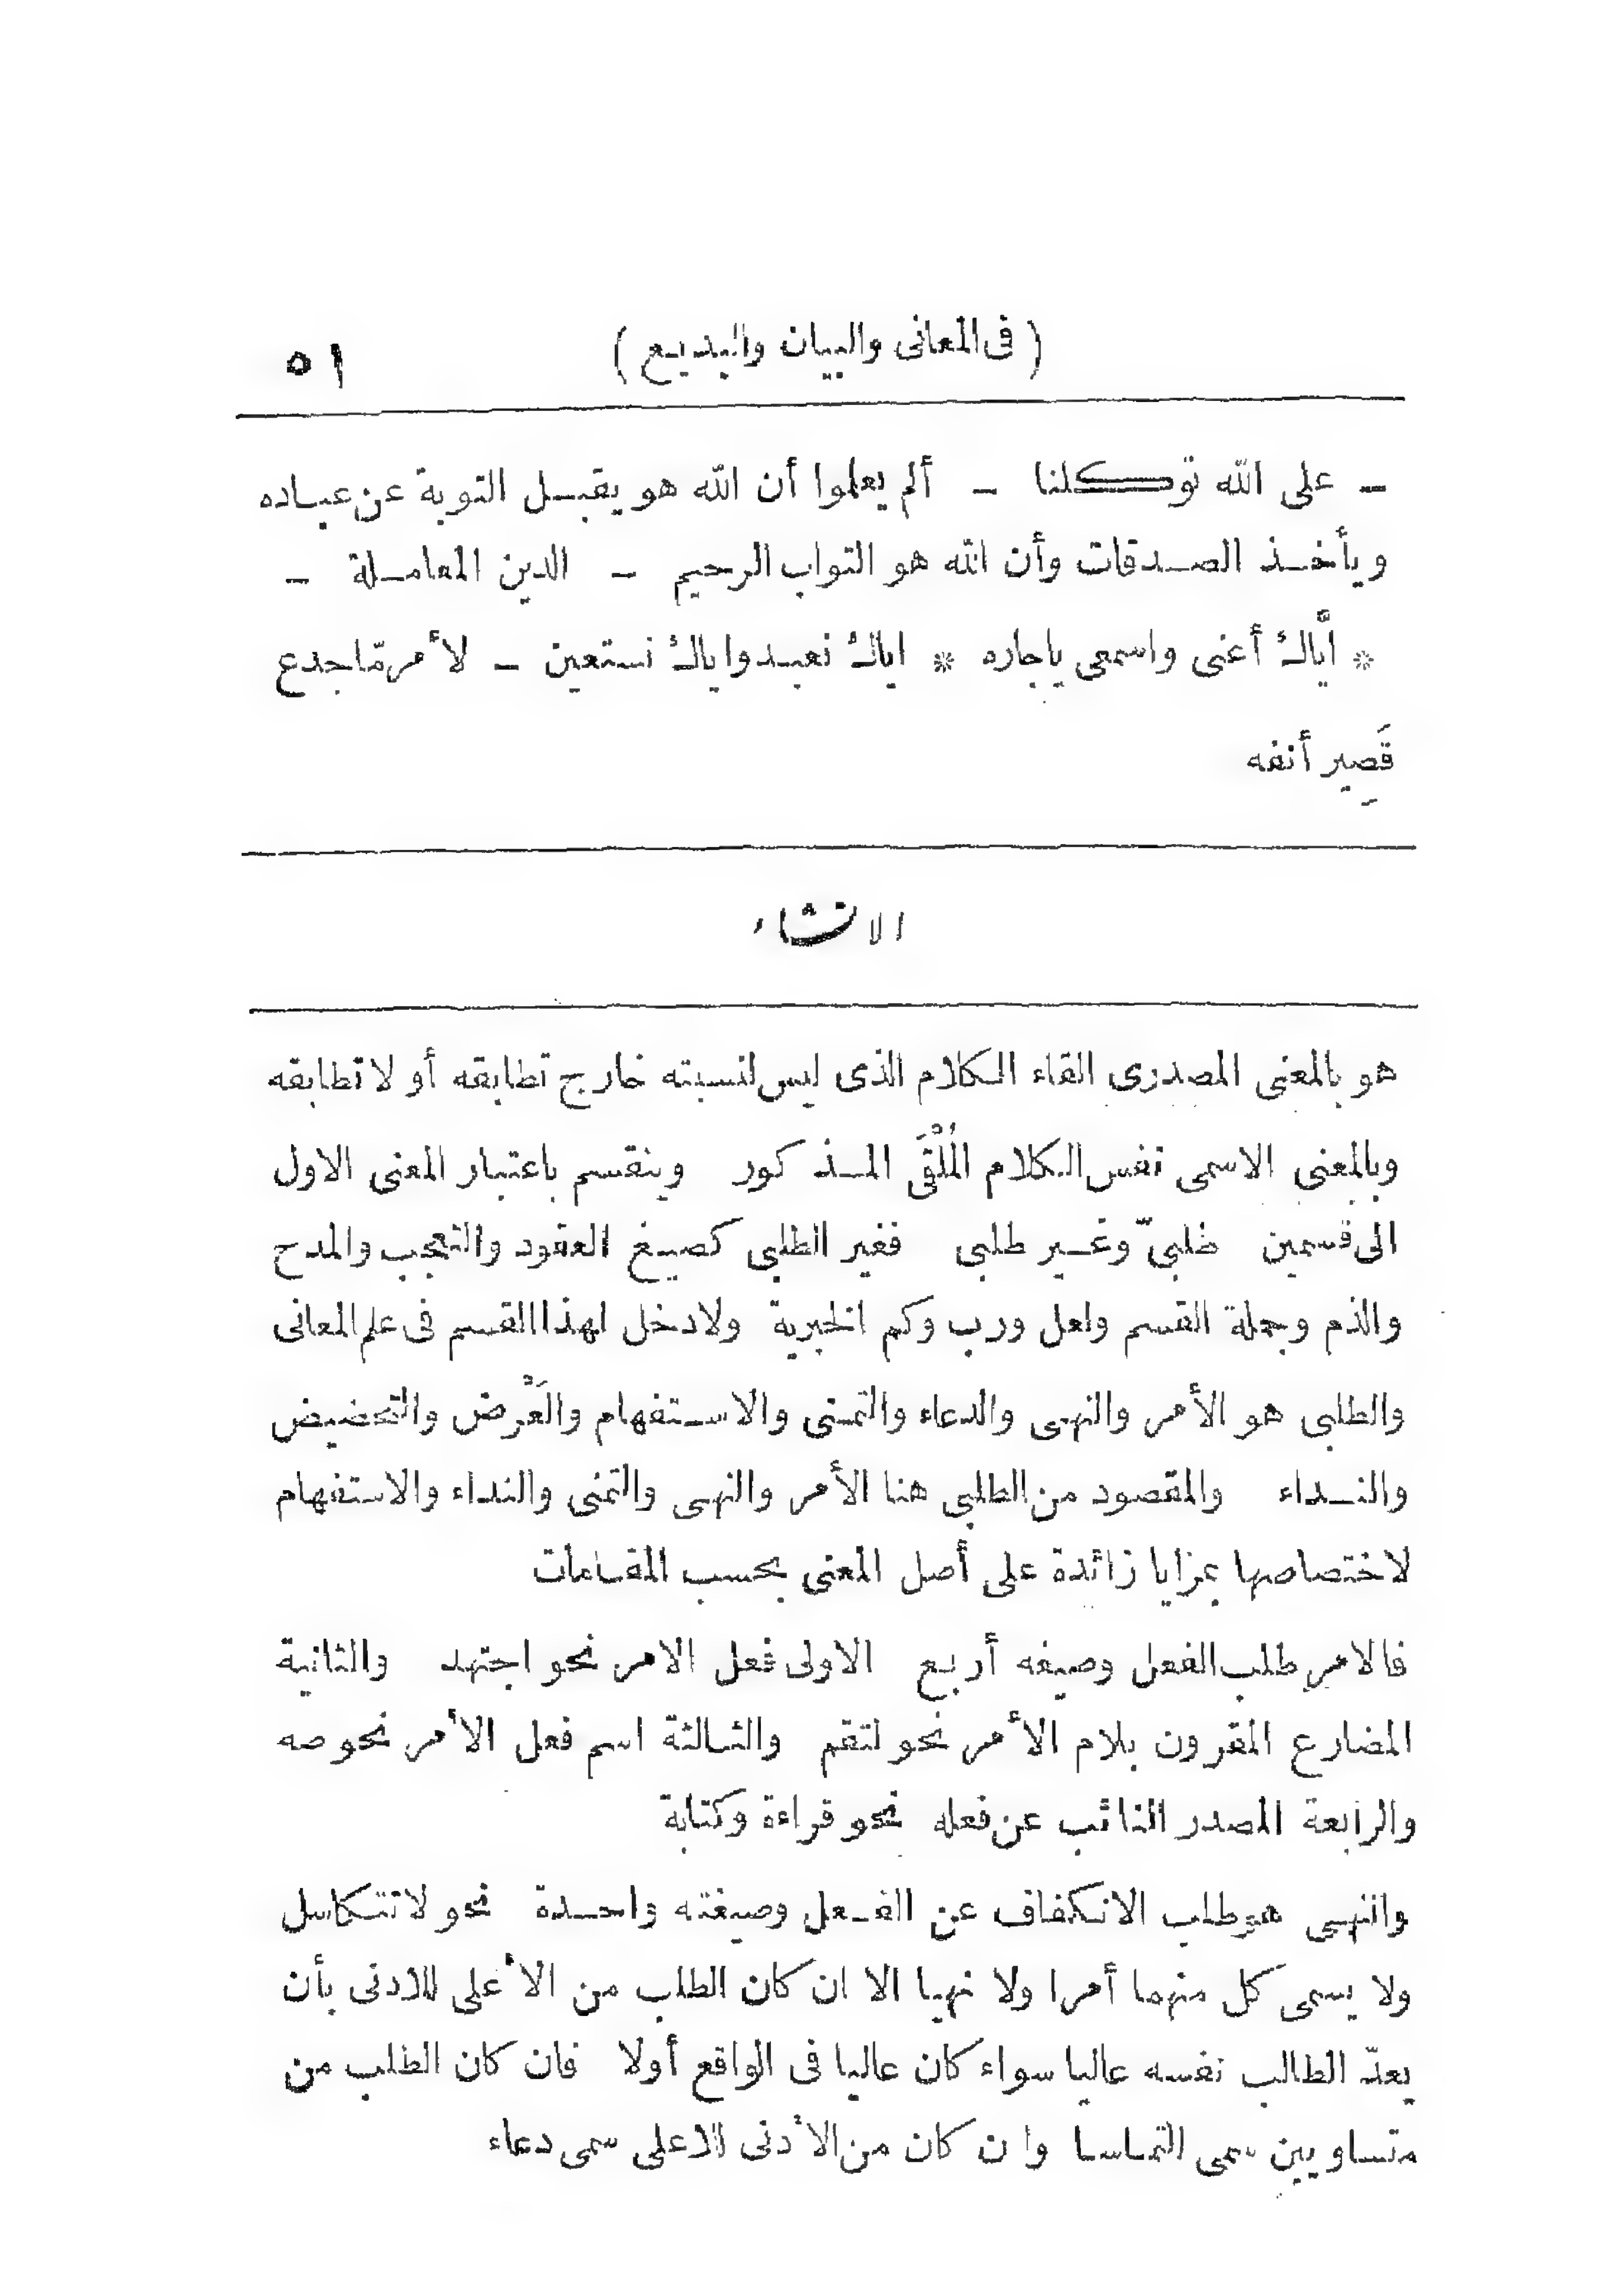 ( فى المعانى والبيان والبديع ) ٥١
ـ على الله توكلنا ـ ألم يعلموا أن الله هو يقبل التوبة عن عباده
ويأخذ الصدقات وأن الله هو التواب الرحيم ـ الدين المعاملة ـ
* ايَّاك أعنى واسمعى ياجاره * اياك نعبدواياك نستعين ـ لأمرمّاجدع
قَصِير أنفه
الانشاء
هو بالمعنى المصدرى القاء الكلام الذى ليس لنسبته خارج تطابقه أو لاتطابقه
وبالمعنى الاسمى نفس الكلام المُلْقَى المذكور وينقسم باعتبار المعنى الاول
الى قسمين طلبىّ وغير طلبى فغير الطلبى كصيغ العقود والتعجب والمدح
والذم وجملة القسم ولعل ورب وكم الخبرية ولادخل لهذا القسم فى علم المعانى
والطلبى هو الأمر والنهى والدعاء والتمنى والاستفهام والعَرْض والتحضيض
والنداء والمقصود من الطلبى هنا الأمر والنهى والتمنى والنداء والاستفهام
لاختصاصها بمزايا زائدة على أصل المعنى بحسب المقامات
فالامر طلب الفعل وصيغه أربع الاولى فعل الامر نحو اجتهد والثانية
المضارع المقرون بلام الأمر نحو لتقم والثالثة اسم فعل الأمر نحو صه
والرابعة المصدر النائب عن فعله نحو قراءة وكتابة
والنهى هو طلب الانكفاف عن الفعل وصيغته واحدة نحو لاتتكاسل
ولا يسمى كل منهما أمرا ولا نهيا الا ان كان الطلب من الأعلى للادنى بأن
يعدّ الطالب نفسه عاليا سواء كان عاليا فى الواقع أولا فان كان الطلب من
متساويين سمى التماسا وان كان من الأدنى للاعلى سمى دعاء